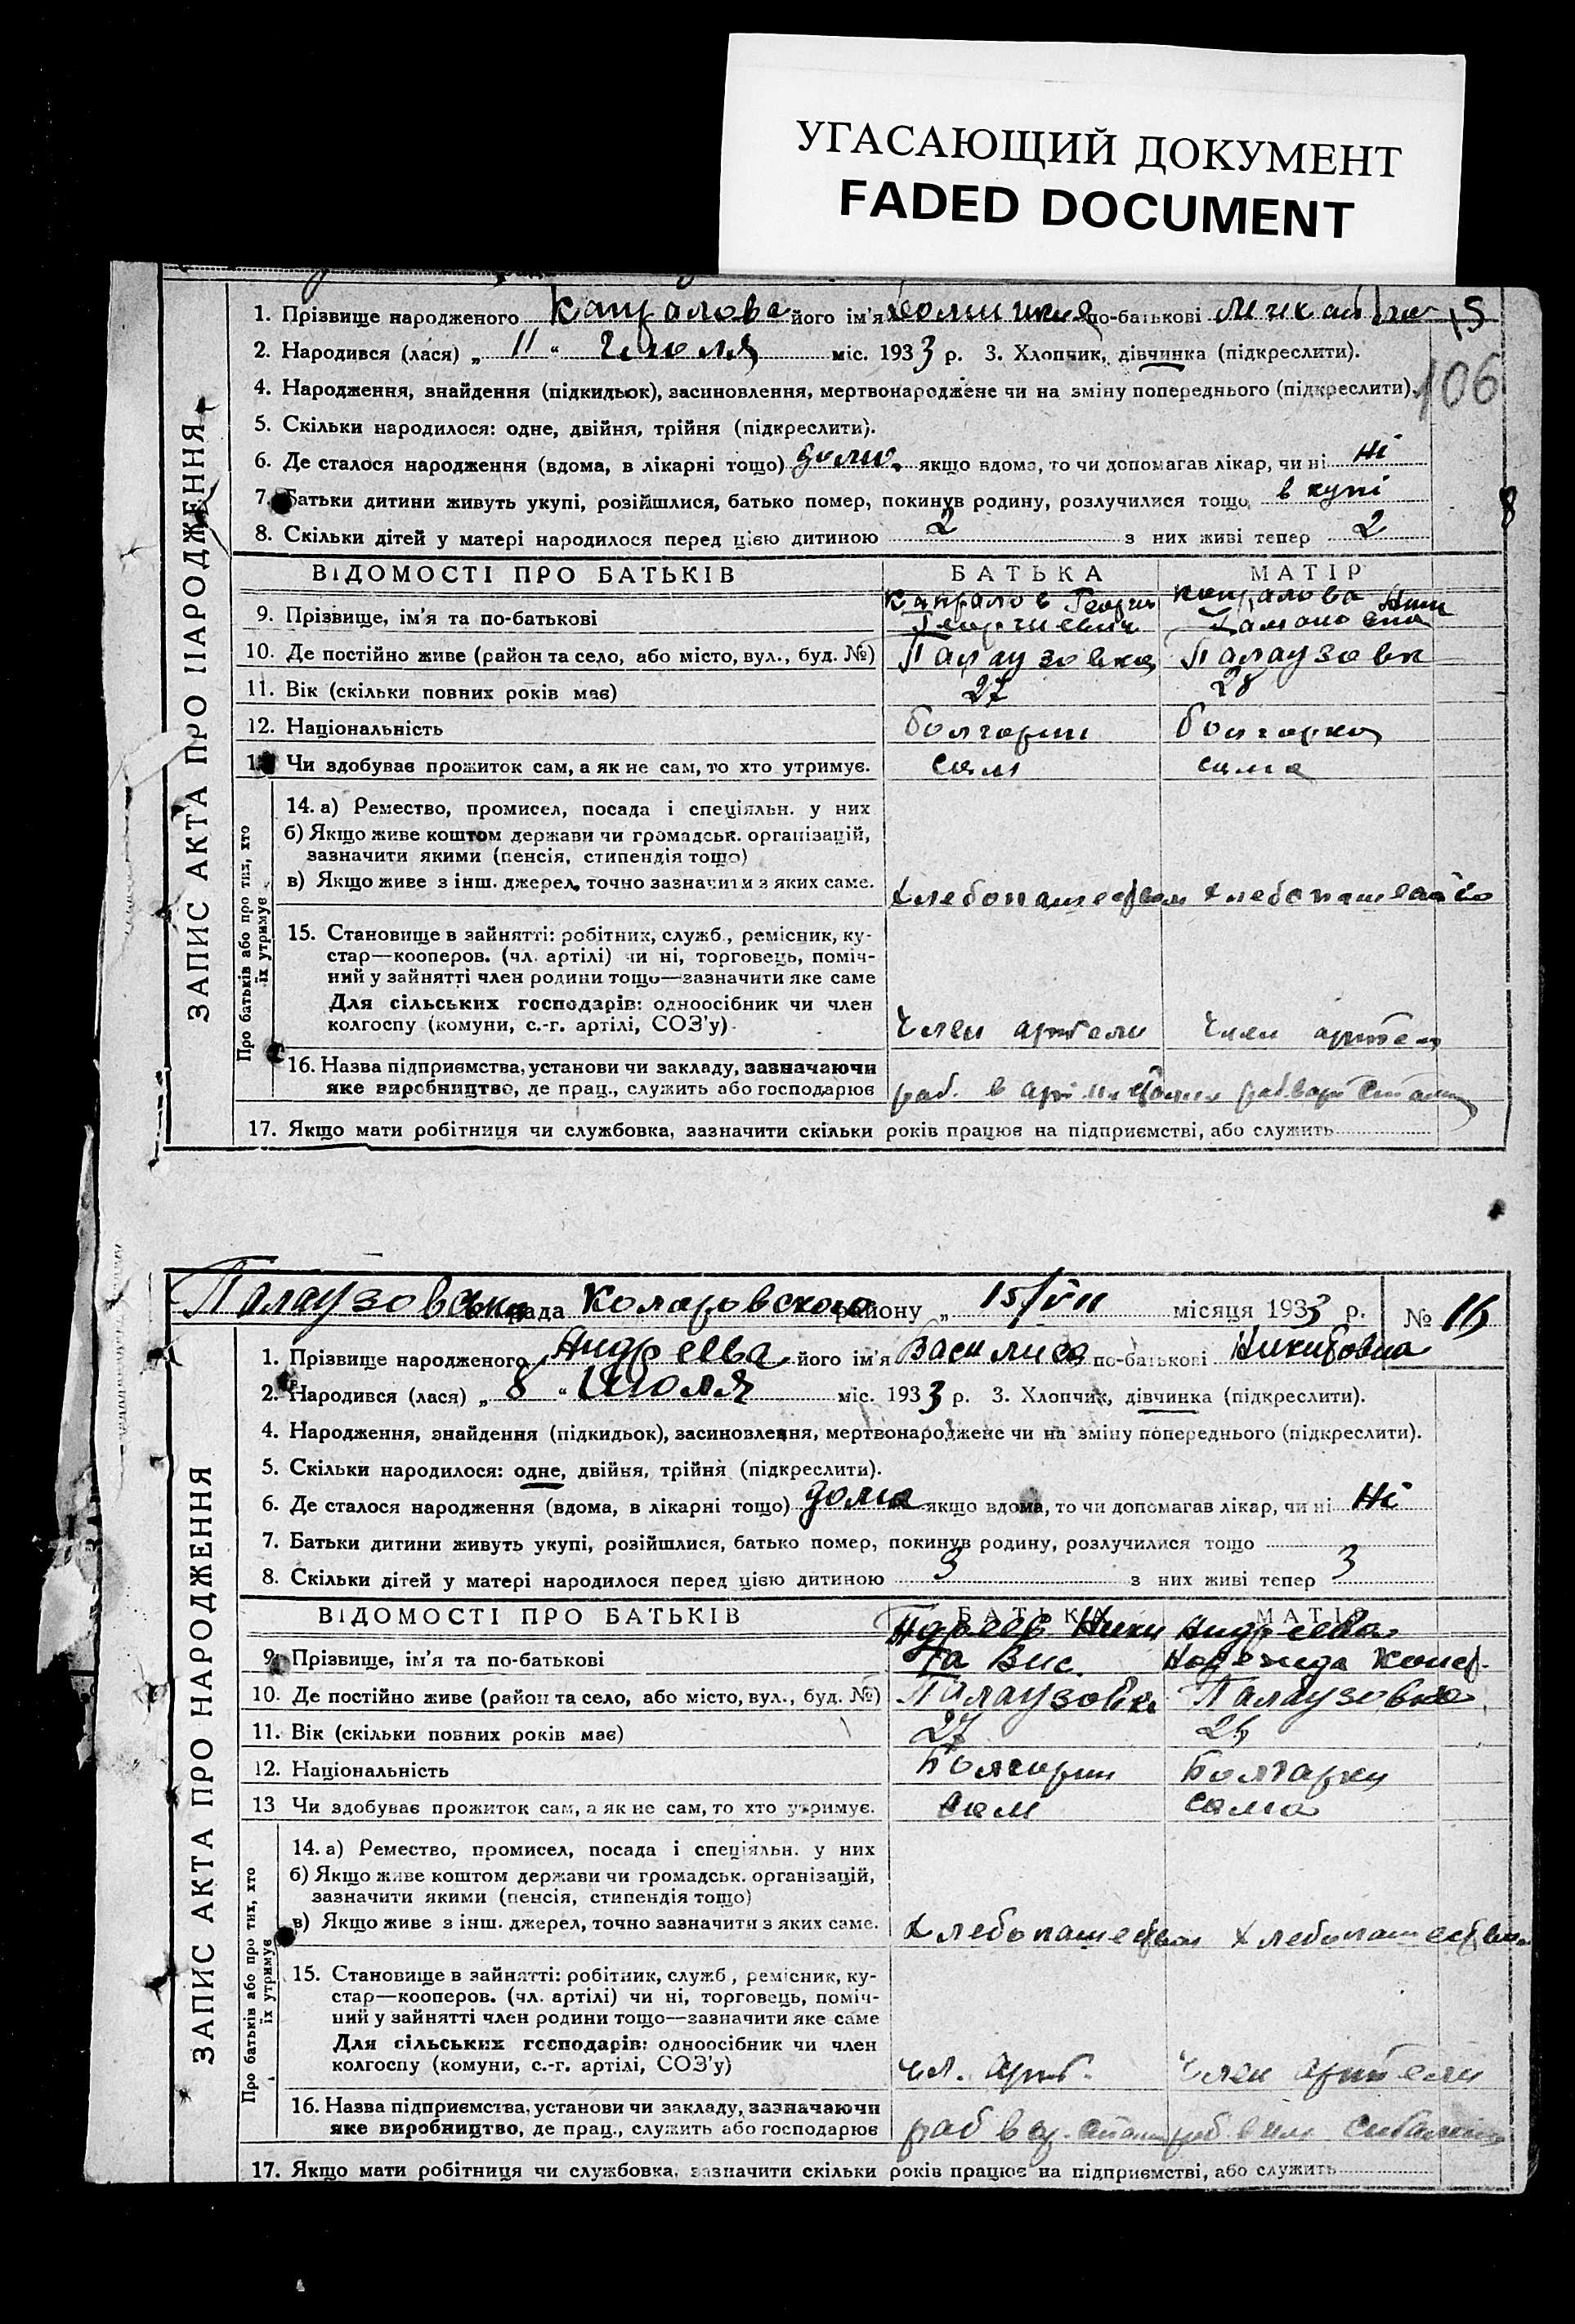 УГАСАЮЩИЙ ДОКУМЕНТ
FADED DOCUMENT
15
106
8
ЗАПИС АКТА ПРО НАРОДЖЕННЯ
1. Прізвище народженого його ім'я по-батькові
2. Народився (лася) „ 11 “ Июля міс. 1933 р. 3. Хлопчик, дівчинка (підкреслити).
4. Народження, знайдення (підкидьок), засиновлення, мертвонароджене чи на зміну попереднього (підкреслити).
5. Скільки народилося: одне, двійня, трійня (підкреслити).
6. Де сталося народження (вдома, в лікарні тощо) дома якщо вдома, то чи допомагав лікар, чи ні ні
7. Батьки дитини живуть укупі, розійшлися, батько помер, покинув родину, розлучилися тощо в купі
8. Скільки дітей у матері народилося перед цією дитиною 2 з них живі тепер 2
ВІДОМОСТІ ПРО БАТЬКІВ БАТЬКА МАТІР
9. Прізвище, ім'я та по-батькові Георги
Георгиевич
10. Де постійно живе (район та село, або місто, вул., буд. №) Палаузовка Палаузовк
11. Вік (скільки повних років має) 27 28
12. Національність болгарин болгарка
13 Чи здобуває прожиток сам, а як не сам, то хто утримує. сам сама
Про батьків або про тих, хто їх утримує
14. а) Ремество, промисел, посада і спеціяльн. у них
б) Якщо живе коштом держави чи громадськ. організацій,
зазначити якими (пенсія, стипендія тощо)
в) Якщо живе з інш. джерел, точно зазначити з яких саме. Хлебопашеством Хлебопашество
15. Становище в зайнятті: робітник, служб., ремісник, ку-
стар—кооперов. (чл. артілі) чи ні, торговець, поміч-
ний у зайнятті член родини тощо—зазначити яке саме
Для сільських господарів: одноосібник чи член
колгоспу (комуни, с.-г. артілі, СОЗ'у). Член артели Член артели
16. Назва підприємства, установи чи закладу, зазначаючи
яке виробництво, де прац., служить або господарює раб. в арт
17. Якщо мати робітниця чи службовка, зазначити скільки років працює на підприємстві, або служить
Палаузовская рада Коларовского району „ 15/VII місяця 1933 р. № 16
ЗАПИС АКТА ПРО НАРОДЖЕННЯ
1. Прізвище народженого Андреева його ім'я Василиса по-батькові Никитовна
2. Народився (лася) „ 8 “ Июля міс. 1933 р. 3. Хлопчик, дівчинка (підкреслити).
4. Народження, знайдення (підкидьок), засиновлення, мертвонароджене чи на зміну попереднього (підкреслити).
5. Скільки народилося: одне, двійня, трійня (підкреслити).
6. Де сталося народження (вдома, в лікарні тощо) дома якщо вдома, то чи допомагав лікар, чи ні ні
7. Батьки дитини живуть укупі, розійшлися, батько помер, покинув родину, розлучилися тощо
8. Скільки дітей у матері народилося перед цією дитиною 3 з них живі тепер 3
ВІДОМОСТІ ПРО БАТЬКІВ БАТЬКА МАТІР
Андреев Ники Андреева
9. Прізвище, ім'я та по-батькові та Вас. Надежда
10. Де постійно живе (район та село, або місто, вул., буд. №) Палаузовка Палаузовка
11. Вік (скільки повних років має) 27
12. Національність Болгарин Болгарка
13 Чи здобуває прожиток сам, а як не сам, то хто утримує. сам сама
Про батьків або про тих, хто їх утримує
14. а) Ремество, промисел, посада і спеціяльн. у них
б) Якщо живе коштом держави чи громадськ. організацій,
зазначити якими (пенсія, стипендія тощо)
в) Якщо живе з інш. джерел, точно зазначити з яких саме. Хлебопашеством Хлебопашеством
15. Становище в зайнятті: робітник, служб., ремісник, ку-
стар—кооперов. (чл. артілі) чи ні, торговець, поміч-
ний у зайнятті член родини тощо—зазначити яке саме
Для сільських господарів: одноосібник чи член
колгоспу (комуни, с.-г. артілі, СОЗ'у) чл. арт. Член артели
16. Назва підприємства, установи чи закладу, зазначаючи
яке виробництво, де прац., служить або господарює раб в
17. Якщо мати робітниця чи службовка, зазначити скільки років працює на підприємстві, або служить